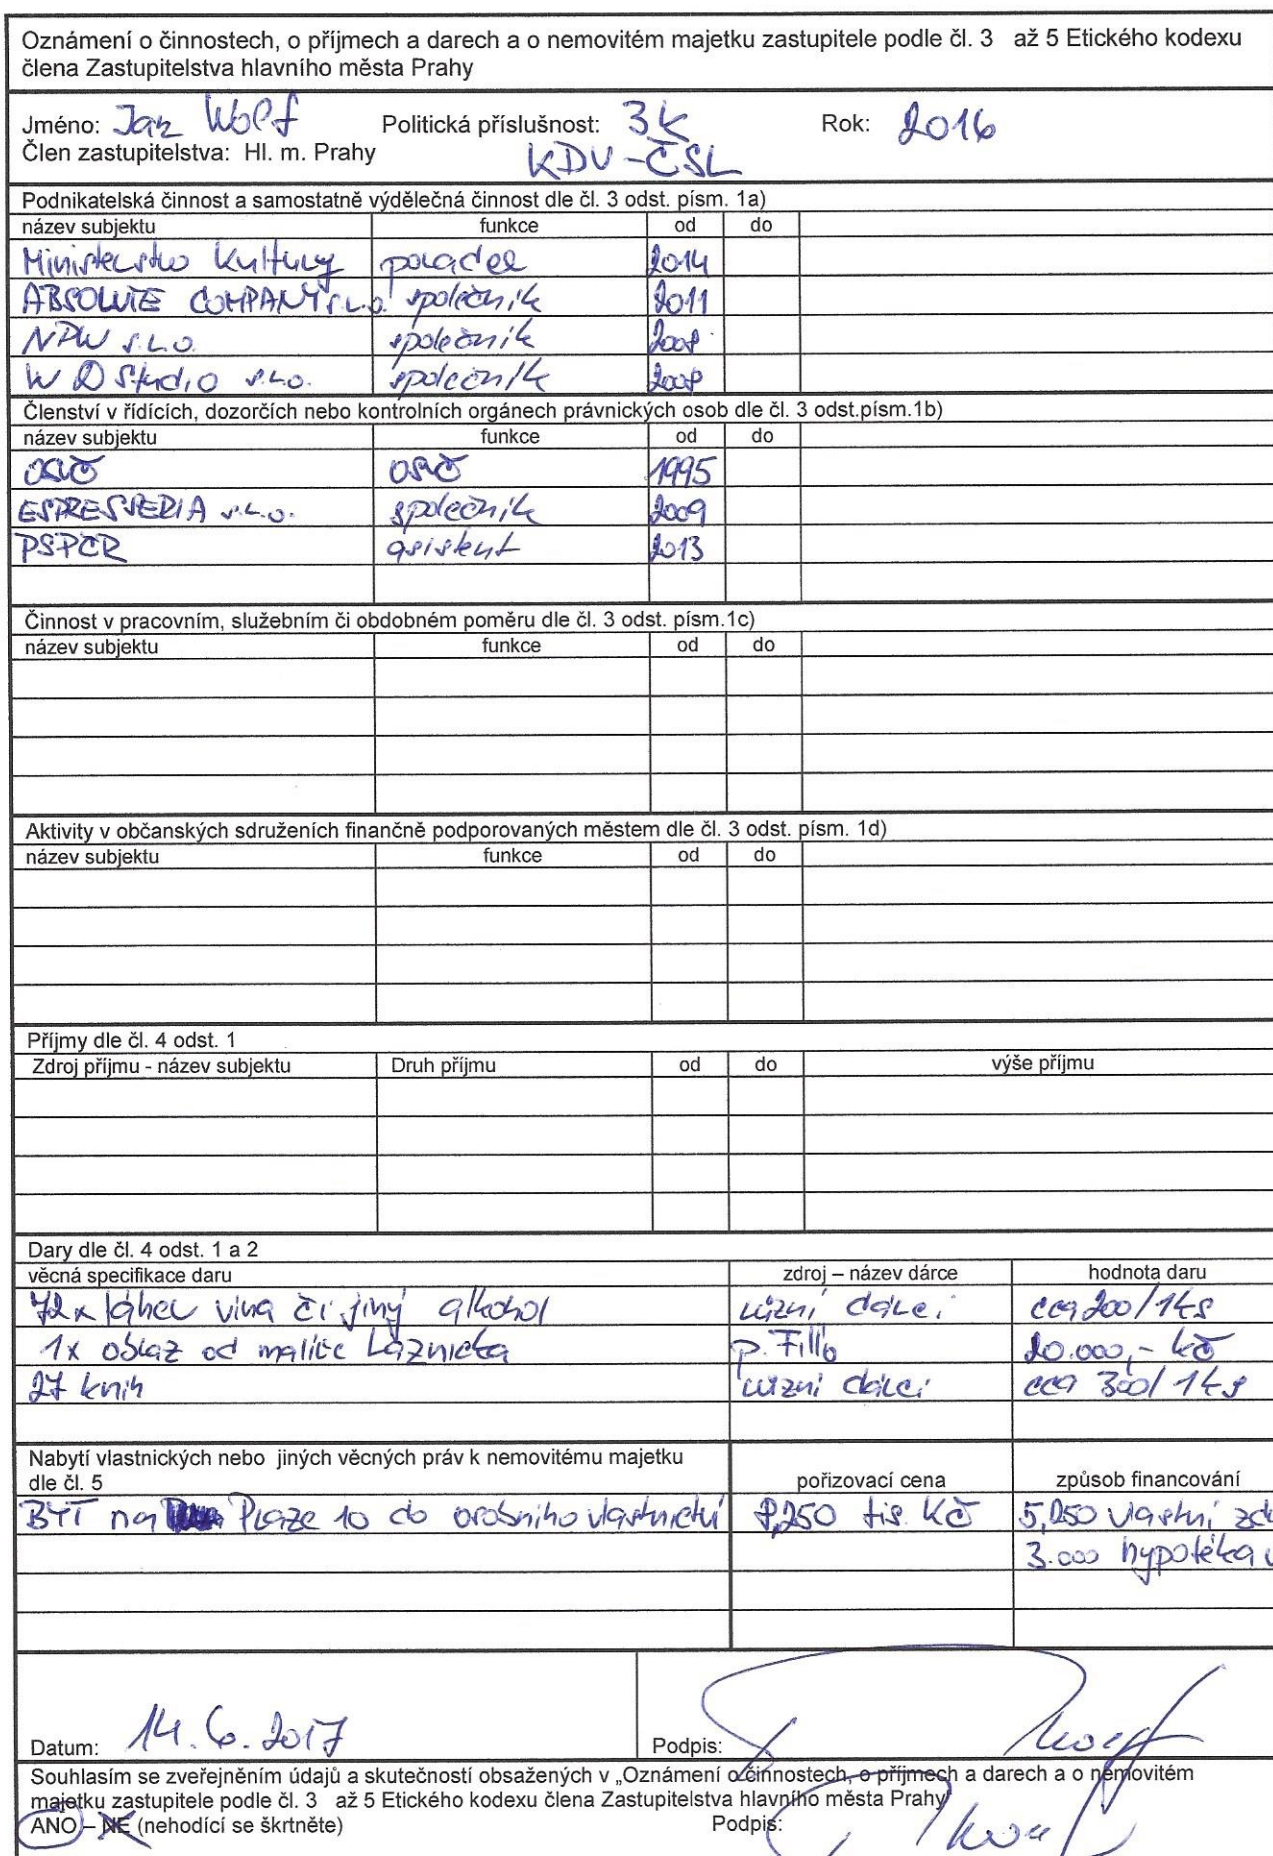 Oznámení o činnostech, o příjmech a darech a o nemovitém majetku zastupitele podle čl. 3 až 5 Etického kodexu
člena Zastupitelstva hlavního města Prahy
Jméno: Jan Wolf Politická příslušnost: 3K Rok: 2016
Člen zastupitelstva: Hl. m. Prahy KDU-ČSL
Podnikatelská činnost a samostatně výdělečná činnost dle čl. 3 odst. písm. 1a)
název subjektu funkce od do
Ministerstvo kultury poradce 2014
ABSOLUTE COMPANY s.r.o. společník 2011
NPW s.r.o. společník 2008
W D Studio s.r.o. společník 2008
Členství v řídících, dozorčích nebo kontrolních orgánech právnických osob dle čl. 3 odst.písm.1b)
název subjektu funkce od do
OSVČ OSVČ 1995
ESPRESSEDIA s.r.o. společník 2009
PSPČR asistent 2013
Činnost v pracovním, služebním či obdobném poměru dle čl. 3 odst. písm.1c)
název subjektu funkce od do
Aktivity v občanských sdruženích finančně podporovaných městem dle čl. 3 odst. písm. 1d)
název subjektu funkce od do
Příjmy dle čl. 4 odst. 1
Zdroj příjmu - název subjektu Druh příjmu od do výše příjmu
Dary dle čl. 4 odst. 1 a 2
věcná specifikace daru zdroj – název dárce hodnota daru
72x láhev vína či jiný alkohol různí dárci cca 200/1ks
1x obraz od malíře Láznička p. Fillo 20.000,- kč
27 knih různí dárci cca 300/1ks
Nabytí vlastnických nebo jiných věcných práv k nemovitému majetku
dle čl. 5 pořizovací cena způsob financování
BYT na Praze 10 do osobního vlastnictví 8,250 tis. Kč 5,250 vlastní zd
3.000 hypotéka
Datum: 14.6.2017 Podpis:
Souhlasím se zveřejněním údajů a skutečností obsažených v „Oznámení o činnostech, o příjmech a darech a o nemovitém
majetku zastupitele podle čl. 3 až 5 Etického kodexu člena Zastupitelstva hlavního města Prahy
ANO – NE (nehodící se škrtněte) Podpis: